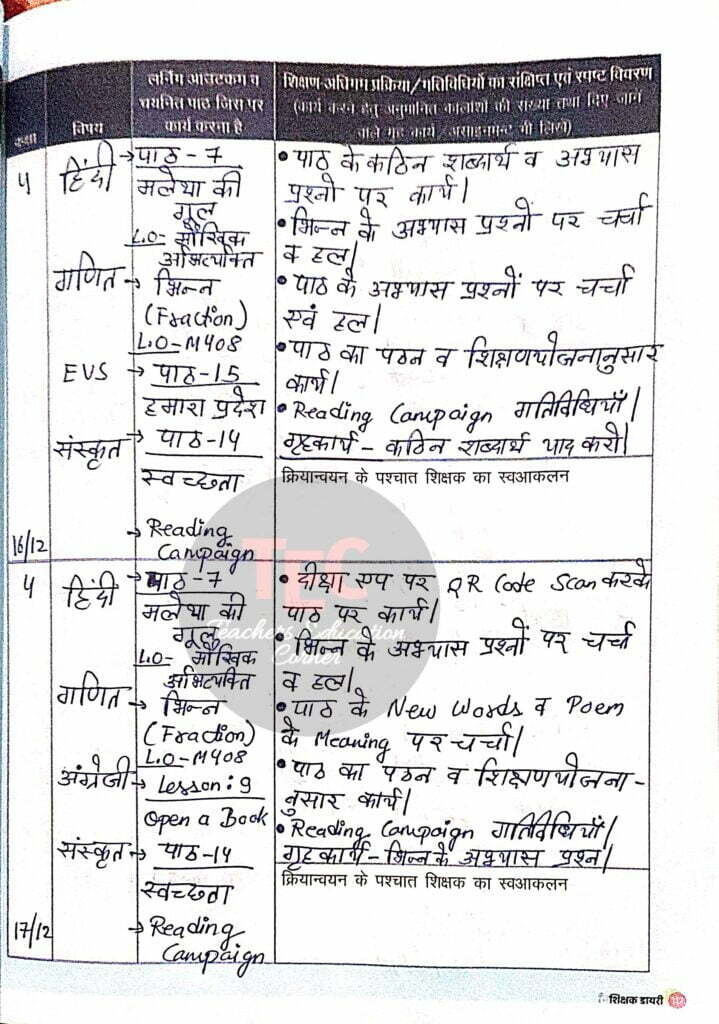 कक्षा
विषय
लर्निंग आउटकम व
चयनित पाठ जिस पर
कार्य करना है
शिक्षण-अधिगम प्रक्रिया/गतिविधियों का संक्षिप्त एवं स्पष्ट विवरण
(कार्य करने हेतु अनुमानित कालांशों की संख्या तथा दिए जाने
वाले गृह कार्य/असाइनमेन्ट भी लिखें)
4
हिंदी → पाठ - 7
मलेथा की
गूल
L.O- मौखिक
अभिव्यक्ति
गणित → भिन्न
(Fraction)
L.O-M408
EVS → पाठ-15
हमारा प्रदेश
संस्कृत → पाठ-14
स्वच्छता
→ Reading
Campaign
16/12
• पाठ के कठिन शब्दार्थ व अभ्यास
प्रश्नो पर कार्य।
• भिन्न के अभ्यास प्रश्नों पर चर्चा
व हल।
• पाठ के अभ्यास प्रश्नों पर चर्चा
एवं हल।
• पाठ का पठन व शिक्षणयोजनानुसार
कार्य।
• Reading Campaign गतिविधियाँ।
गृहकार्य - कठिन शब्दार्थ याद करो।
क्रियान्वयन के पश्चात शिक्षक का स्वआकलन
4
हिंदी → पाठ - 7
मलेथा की
गूल
L.O- मौखिक
अभिव्यक्ति
गणित → भिन्न
(Fraction)
L.O-M408
अंग्रेजी → Lesson: 9
Open a Book
संस्कृत → पाठ-14
स्वच्छता
→ Reading
Campaign
17/12
• दीक्षा एप पर QR Code Scan करके
पाठ पर कार्य।
• भिन्न के अभ्यास प्रश्नों पर चर्चा
व हल।
• पाठ के New Words व Poem
के Meaning पर चर्चा।
• पाठ का पठन व शिक्षणयोजना-
नुसार कार्य।
• Reading Campaign गतिविधियाँ।
गृहकार्य - भिन्न के अभ्यास प्रश्न।
क्रियान्वयन के पश्चात शिक्षक का स्वआकलन
TEC
Teachers Education
Corner
शिक्षक डायरी 117